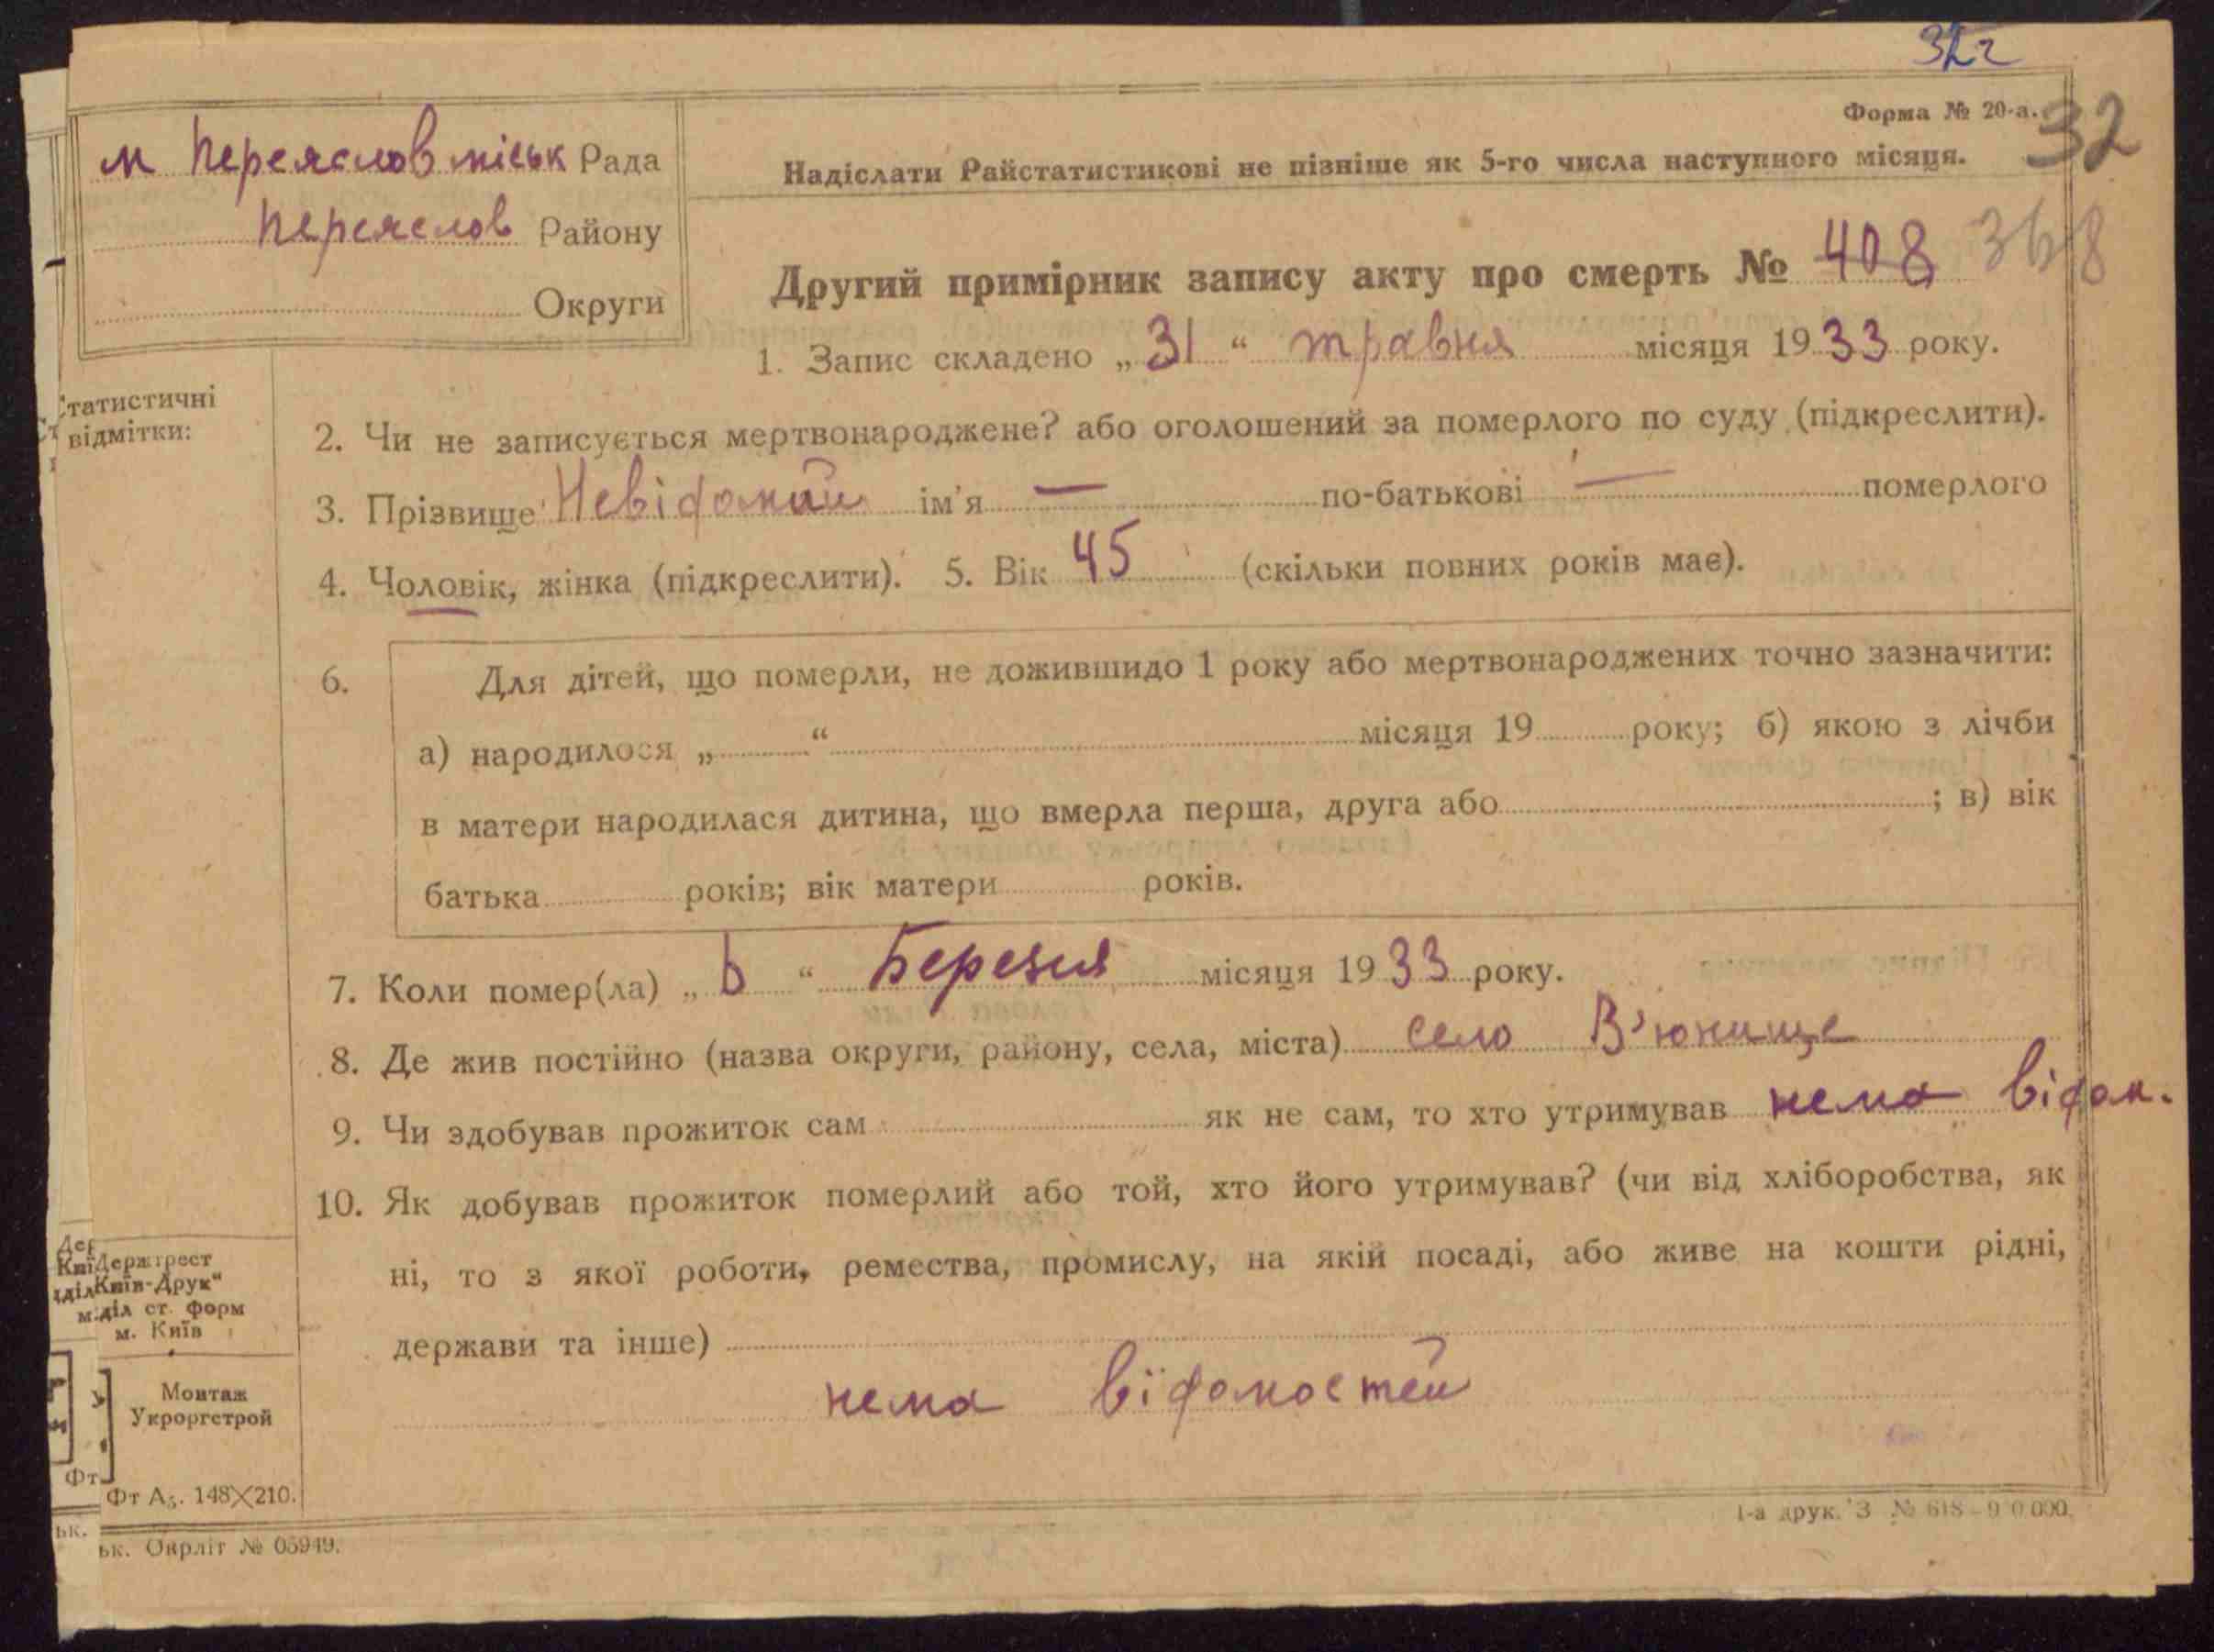 32г
Форма № 20-а.
32
м Переяслов міськ Рада
Переяслов Району
Округи
Надіслати Райстатистикові не пізніше як 5-го числа наступного місяця.
Другий примірник запису акту про смерть № 408 368
1. Запис складено „31“ травня місяця 1933 року.
Статистичні
відмітки:
2. Чи не записується мертвонароджене? або оголошений за померлого по суду (підкреслити).
3. Прізвище Невідомий ім'я — по-батькові — померлого
4. Чоловік, жінка (підкреслити). 5. Вік 45 (скільки повних років має).
6. Для дітей, що померли, не дожившидо 1 року або мертвонароджених точно зазначити:
а) народилося „ “ місяця 19 року; б) якою з лічби
в матери народилася дитина, що вмерла перша, друга або ; в) вік
батька років; вік матери років.
7. Коли помер(ла) „ “ Березня місяця 1933 року.
8. Де жив постійно (назва округи, району, села, міста) село В'юнище
9. Чи здобував прожиток сам як не сам, то хто утримував нема відом.
10. Як добував прожиток померлий або той, хто його утримував? (чи від хліборобства, як
ні, то з якої роботи, ремества, промислу, на якій посаді, або живе на кошти рідні,
держави та інше)
нема відомостей
Держтрест
„Київ-Друк“
діл ст. форм
м. Київ
Монтаж
Укроргстрой
Фт А₅. 148×210.
ьк. Окрліт № 05949.
1-а друк. З № 618